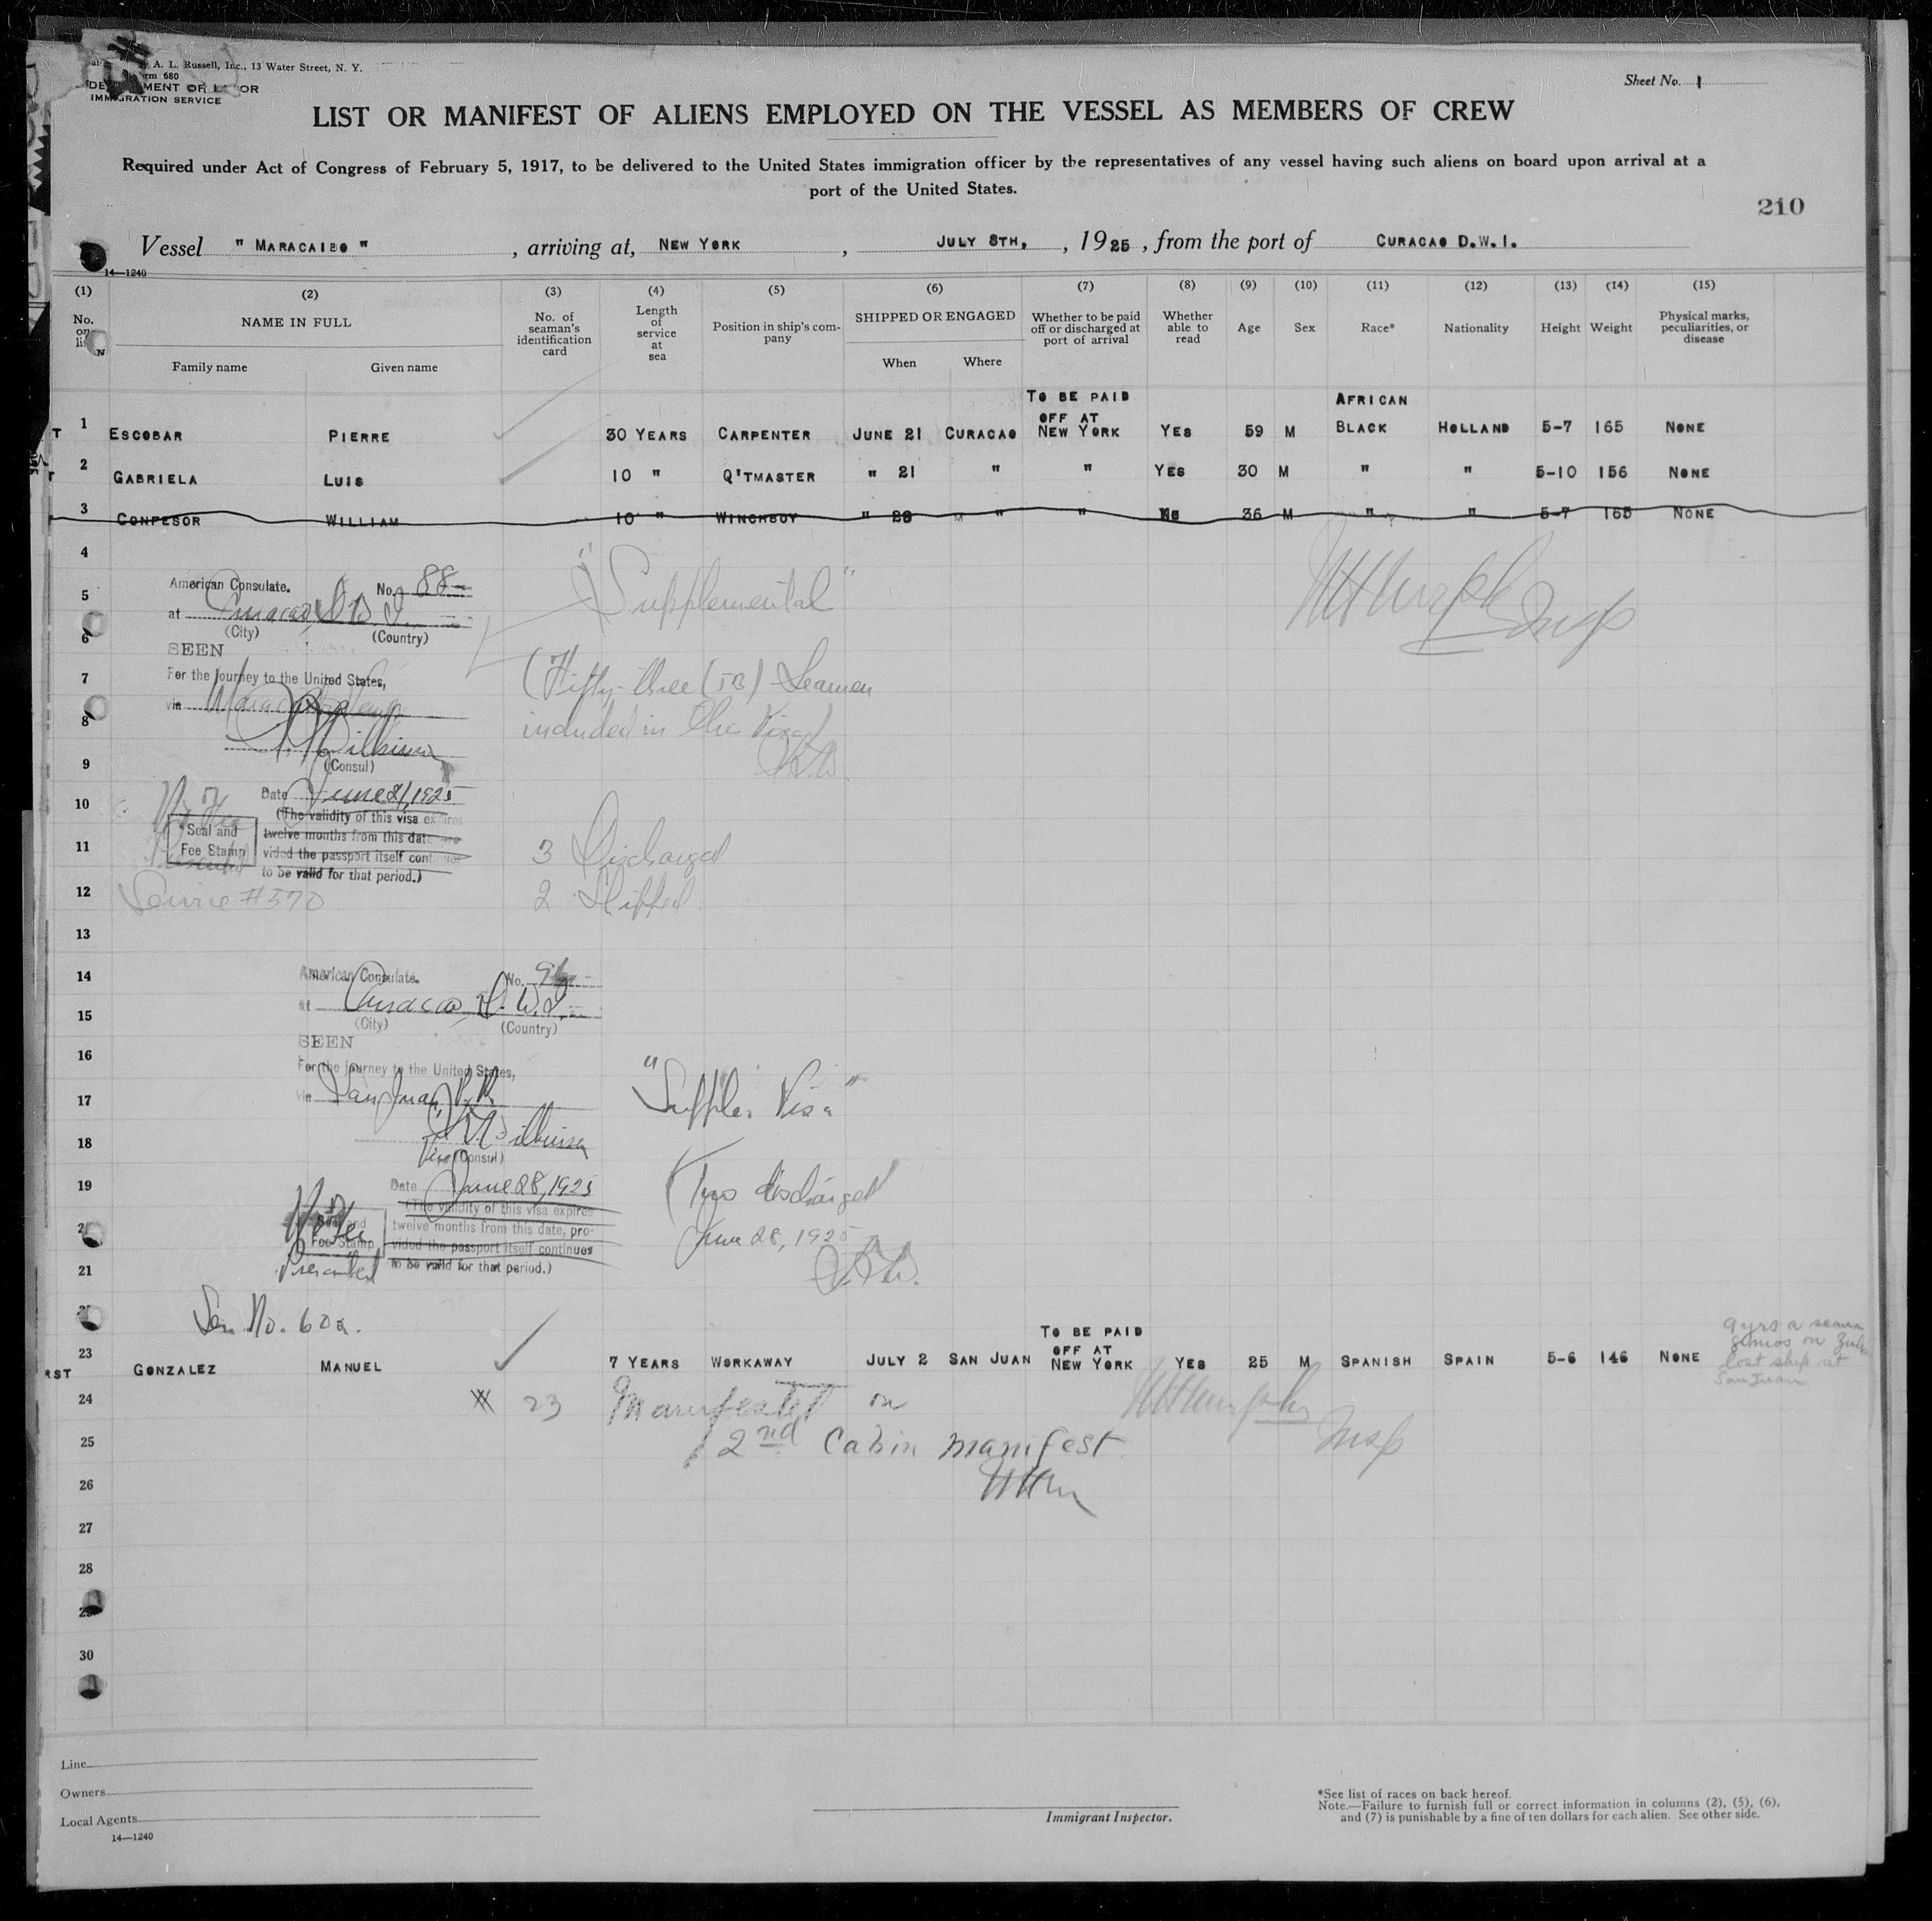 A. L. Russell, Inc., 13 Water Street, N. Y.
680
DEPARTMENT OF LABOR
IMMIGRATION SERVICE
Sheet No. 1
LIST OR MANIFEST OF ALIENS EMPLOYED ON THE VESSEL AS MEMBERS OF CREW
Required under Act of Congress of February 5, 1917, to be delivered to the United States immigration officer by the representatives of any vessel having such aliens on board upon arrival at a
port of the United States.
210
Vessel " MARACAIBO " , arriving at, NEW YORK , JULY 8TH, , 1925 , from the port of CURACAO D.W.I.
14—1240
(1) (2) (3) (4) (5) (6) (7) (8) (9) (10) (11) (12) (13) (14) (15)
No. on list
NAME IN FULL
Family name Given name
No. of seaman's identification card
Length of service at sea
Position in ship's company
SHIPPED OR ENGAGED
When Where
Whether to be paid off or discharged at port of arrival
Whether able to read
Age Sex Race* Nationality Height Weight
Physical marks, peculiarities, or disease
TO BE PAID AFRICAN
OFF AT
1 ESCOBAR PIERRE 30 YEARS CARPENTER JUNE 21 CURACAO NEW YORK YES 59 M BLACK HOLLAND 5-7 165 NONE
2 GABRIELA LUIS 10 " Q'TMASTER " 21 " " YES 30 M " " 5-10 156 NONE
3 CONFESOR WILLIAM 10 " WINCHBOY " " " 36 M " " 5-7 165 NONE
4
American Consulate. No. 88
5
"Supplemental"
at Curacao, D.W.I.
(City) (Country)
6
SEEN
For the journey to the United States,
7
(Fifty-three (53) Seamen
via
8
included in the Visa)
(Consul)
9
Date June 21, 1925
10
No Fee
(The validity of this visa expires
Seal and
twelve months from this date, provided
Fee Stamp
11
the passport itself continues
to be valid for that period.)
3 Discharged
12
Service #570
2 Shipped
13
14
American Consulate. No.
at Curacao, D.W.I.
15
(City) (Country)
SEEN
16
For the journey to the United States,
via San Juan, P.R.
17
"Supple. Visa"
18
Vice (Consul)
19
Date June 28, 1925
(Two discharged
(The validity of this visa expires
No Fee
Seal and
twelve months from this date, pro-
June 28, 1925
Fee Stamp
vided the passport itself continues
Prescribed
to be valid for that period.)
21
Ser. No. 602.
TO BE PAID
OFF AT
23 GONZALEZ MANUEL 7 YEARS WORKAWAY JULY 2 SAN JUAN NEW YORK YES 25 M SPANISH SPAIN 5-6 146 NONE
lost ship at
San Juan
24
23 Manifested on
25
2nd Cabin manifest
Insp
26
27
28
29
30
Line
Owners
Local Agents
14—1240
Immigrant Inspector.
*See list of races on back hereof.
Note.—Failure to furnish full or correct information in columns (2), (5), (6),
and (7) is punishable by a fine of ten dollars for each alien. See other side.